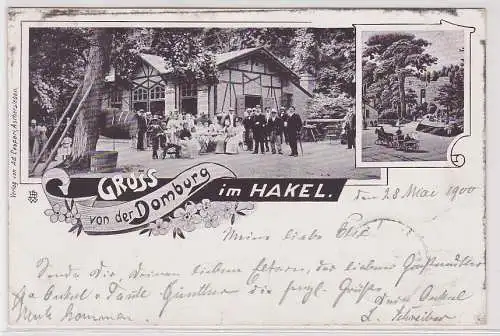 Verlag von Ad. Aschersleben.
Gruss
von der Domburg
im HAKEL.
den 28 Mai 1900
Meine liebe
Sende Dir, Deinen lieben Eltern, der lieben Großmutter
Onkel u Tante Günther die herzl. Grüße.
Dein Onkel
L. Schreiber